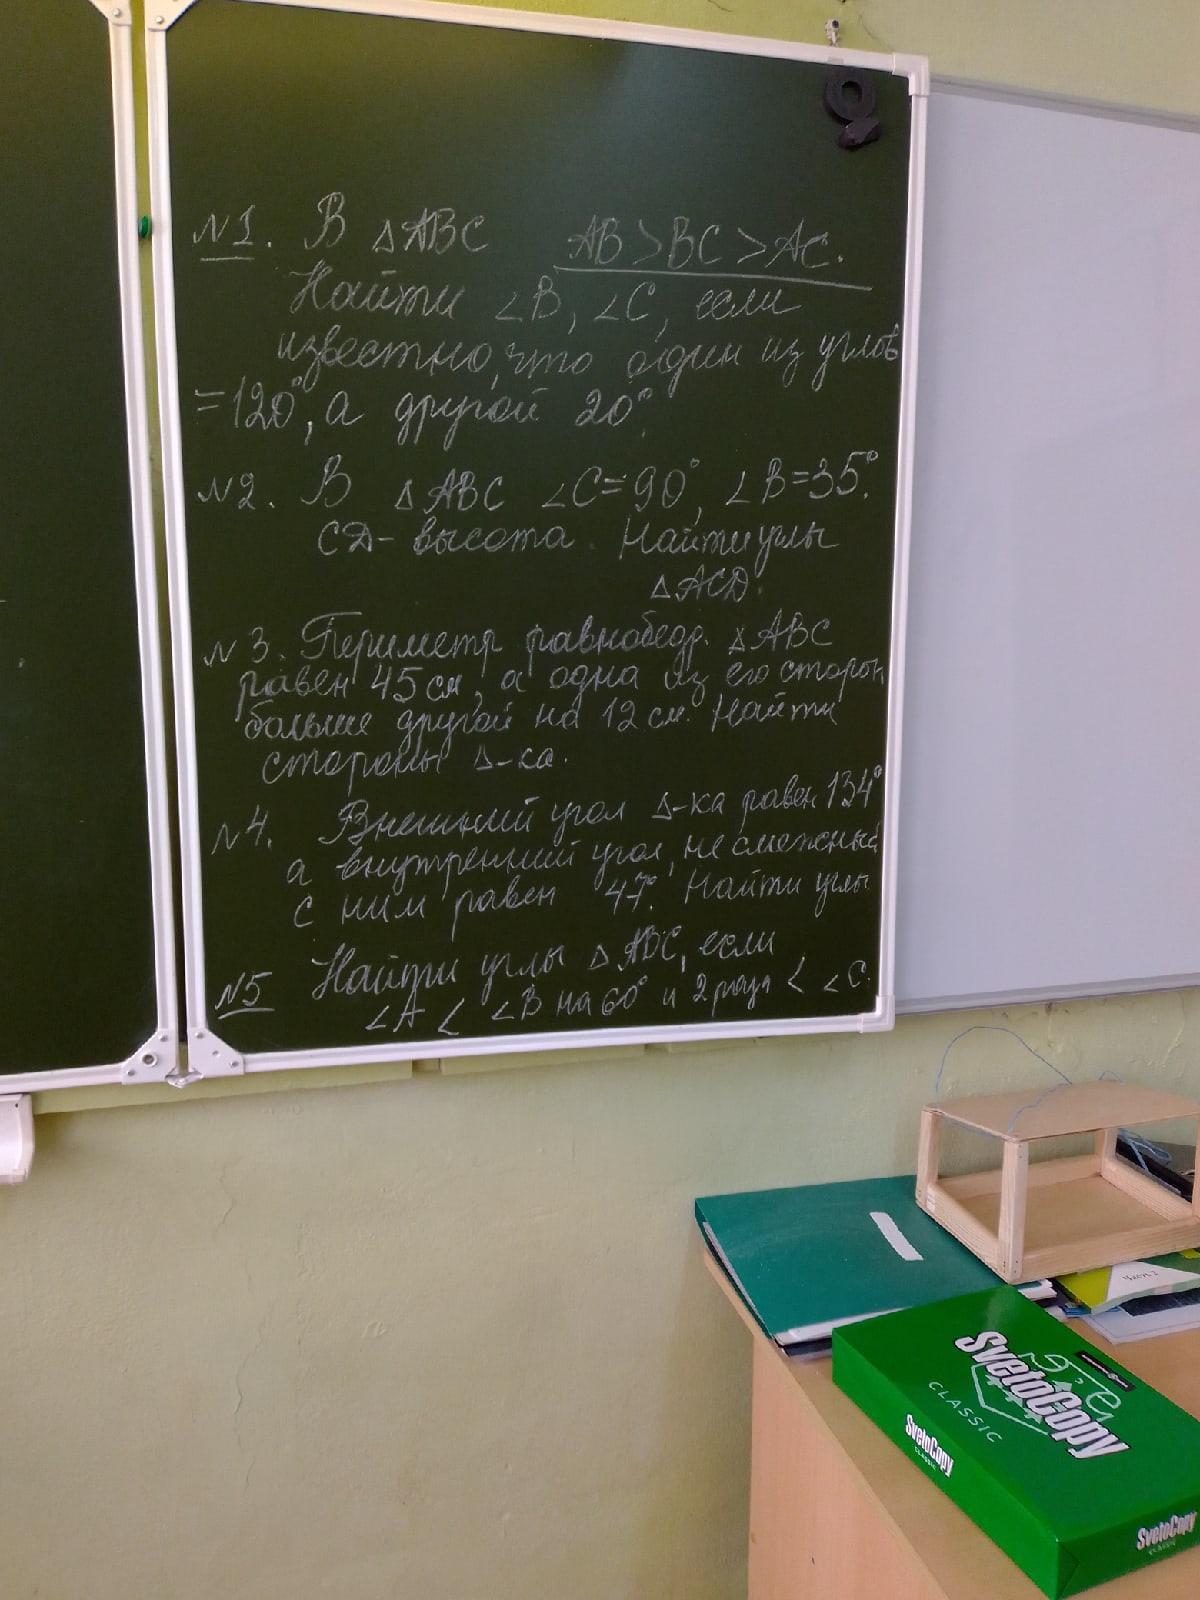 №1. В △ABC AB>BC>AC.
Найти ∠B, ∠C, если
известно, что один из углов
=120°, а другой 20°.
№2. В △ABC ∠C=90°, ∠B=35°.
CD- высота. Найти углы
△ACD.
№3. Периметр равнобедр. △ABC
равен 45 см, а одна из его сторон
больше другой на 12 см. Найти
стороны △-ка.
№4. Внешний угол △-ка равен 134°
а внутренний угол, не смежный
с ним равен 47°. Найти углы
№5 Найти углы △ABC, если
∠A < ∠B на 60° и 2 раза < ∠C.
Часть 2
SvetoCopy
CLASSIC
SvetoCopy
CLASSIC
SvetoCopy
CLASSIC